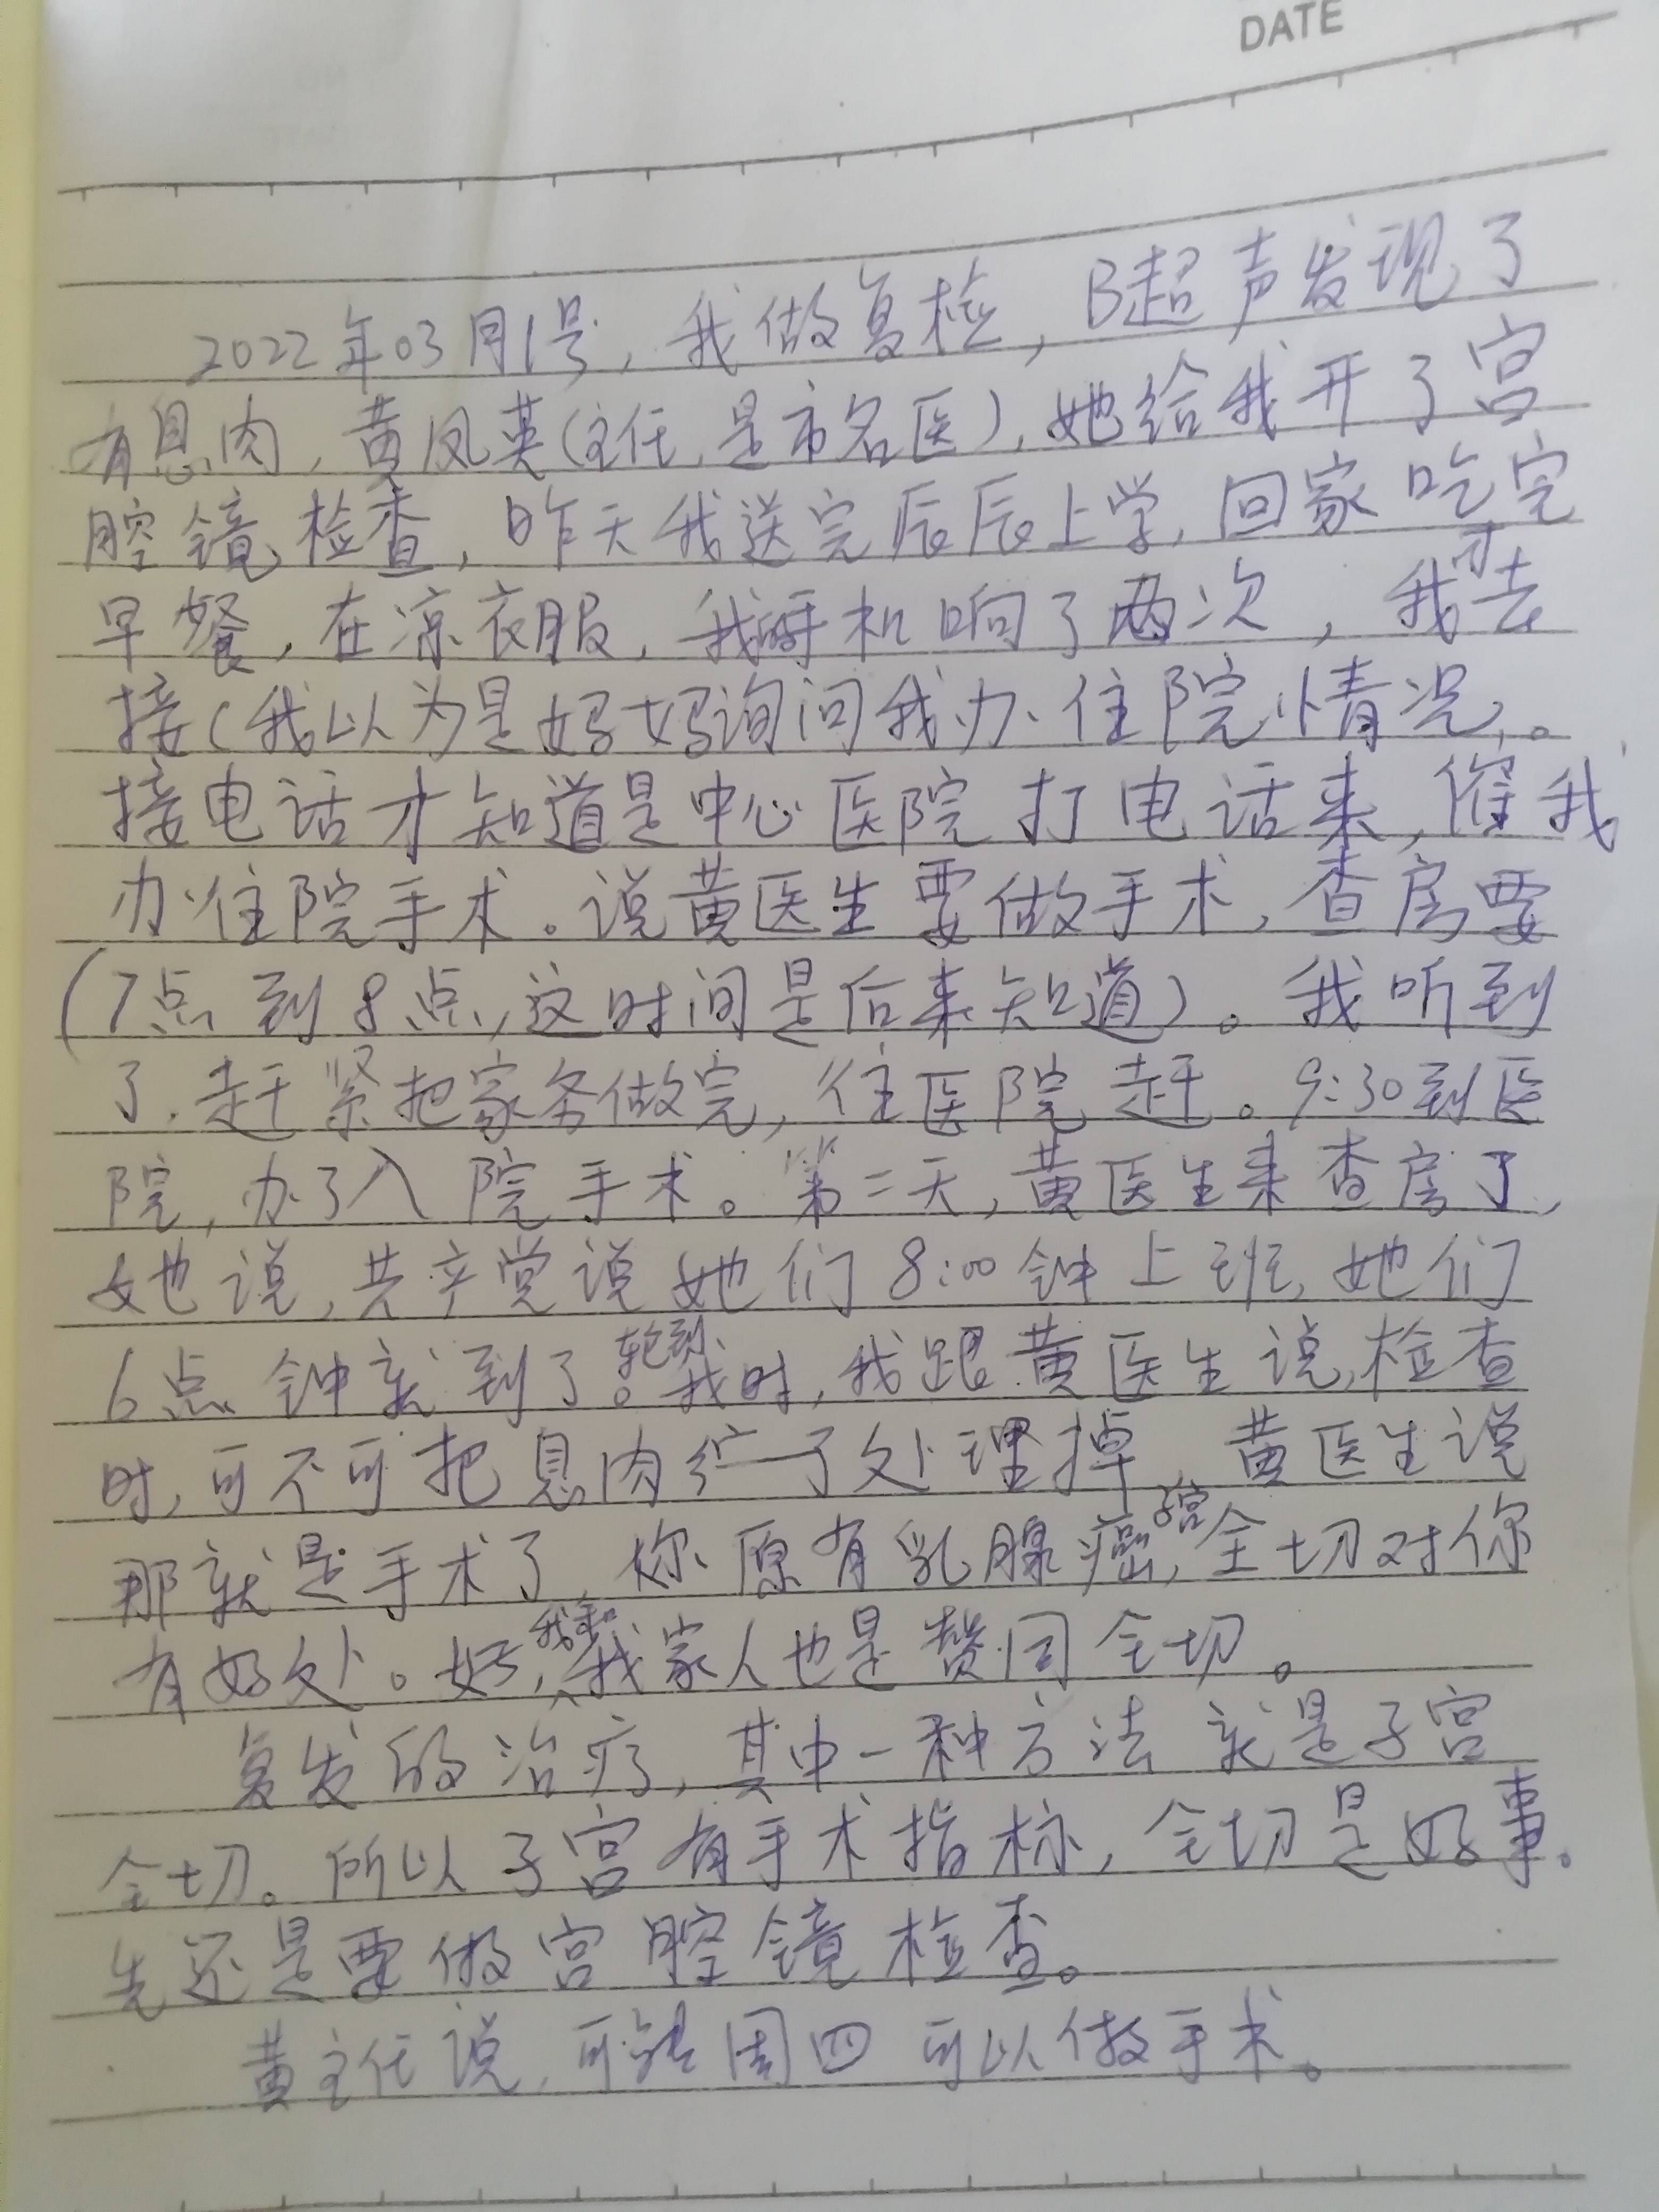 DATE
2022年03月1号,我做复检,B超声发现了
有息肉,黄凤英(主任,是市名医),她给我开了宫
腔镜检查,昨天我送完辰辰上学,回家吃完
早餐,在凉衣服,我手机响了两次,我才去
接(我以为是妈妈询问我办住院情况)。
接电话才知道是中心医院打电话来,催我
办住院手术。说黄医生要做手术,查房要
(7点到8点,这时间是后来知道)。我听到
了,赶紧把家务做完,往医院赶。9:30到医
院,办了入院手术。第二天,黄医生来查房了,
她说,共产党说她们8:00钟上班,她们
6点钟就到了。轮到我时,我跟黄医生说,检查
时,可不可把息肉 一了处理掉,黄医生说
那就是手术了,你原有乳腺癌,子宫全切对你
有好处。好,我和我家人也是赞同全切。
复发的治疗,其中一种方法就是子宫
全切。所以子宫有手术指标,全切是好事。
先还是要做宫腔镜检查。
黄主任说,可能周四可以做手术。